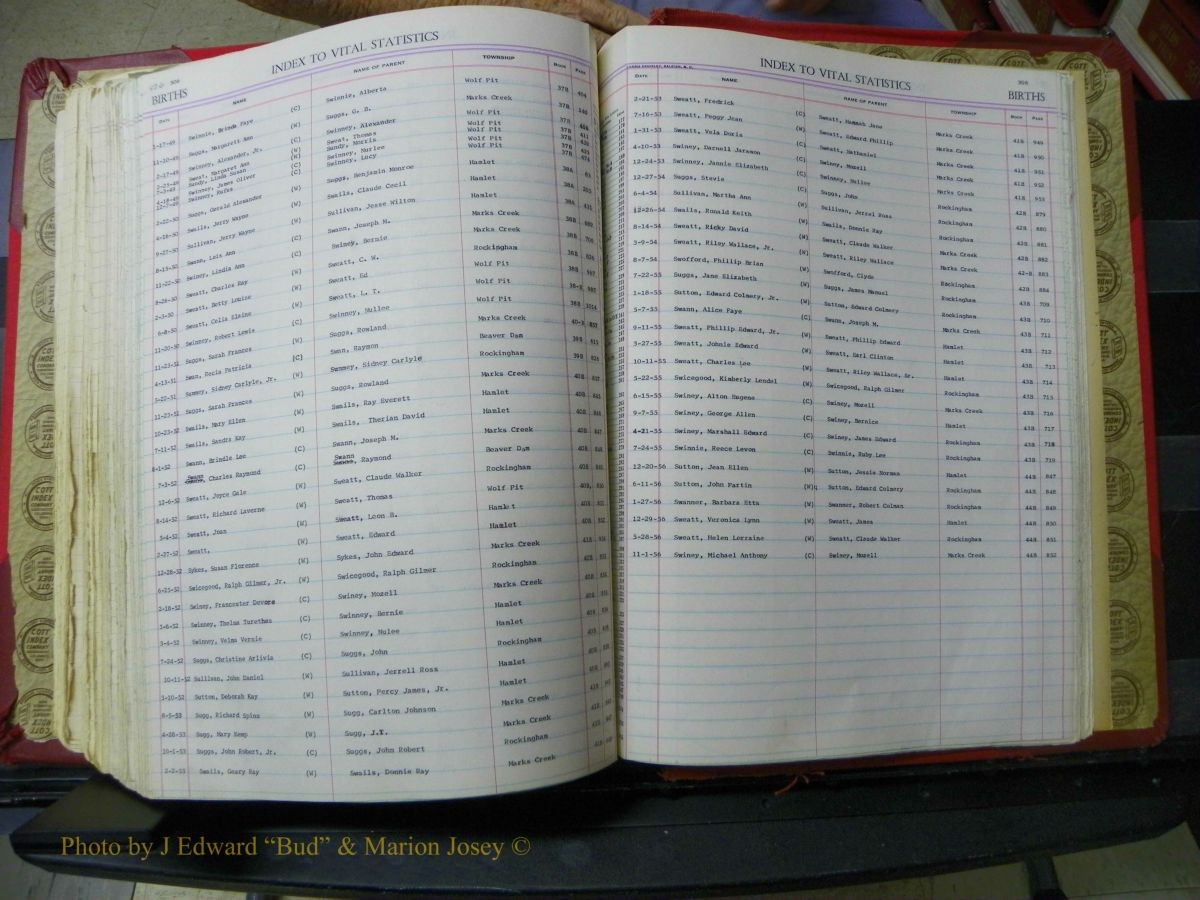 306
INDEX TO VITAL STATISTICS
BIRTHS
DATE NAME NAME OF PARENT TOWNSHIP BOOK PAGE
1-17-49 Swinnie, Brinda Faye (C) Swinnie, Alberta Wolf Pit 37B 404
11-10-49 Suggs, Margarett Ann (W) Suggs, G. B. Marks Creek 37B
2-17-49 Swinney, Alexander, Jr. (C) Swinney, Alexander Wolf Pit 37B
Sweat, Margaret Ann (W) Sweat, Thomas Wolf Pit 37B
Sandy, Linda Susan (W) Sandy, Morris Wolf Pit 37B
Swinney, James Oliver (C) Swinney, Nurlee Wolf Pit 37B
Swinney, Rufus (C) Swinney, Lucy
2-22-50 Suggs, Gerald Alexander Suggs, Benjamin Monroe Hamlet 38A
4-16-50 Swails, Jerry Wayne (W) Swails, Claude Cecil Hamlet 38A
9-27-50 Sullivan, Jerry Wayne (W) Sullivan, Jesse Wilton Hamlet 38A
8-15-50 Swann, Lois Ann (C) Swann, Joseph M. Marks Creek 38B
11-22-50 Swiney, Lindia Ann (C) Swiney, Bernie Marks Creek 38B
Sweatt, Charles Ray (W) Sweatt, C. W. Rockingham 38B
2-3-50 Sweatt, Betty Louise (W) Sweatt, Ed Wolf Pit 38B
6-8-50 Sweatt, Celia Elaine (W) Sweatt, L. T. Wolf Pit
11-20-50 Swinney, Robert Lewis (C) Swinney, Nullee Wolf Pit 38B
11-23-51 Suggs, Sarah Frances Suggs, Rowland Marks Creek 857
4-13-51 Swan, Recia Patricia (C) Swan, Raymon Beaver Dam 39B
5-22-51 Summey, Sidney Carlyle, Jr. (W) Summey, Sidney Carlyle Rockingham 39B
11-23-51 Suggs, Sarah Frances (W) Suggs, Rowland Marks Creek 40B
10-23-52 Swails, Mary Ellen (W) Swails, Ray Everett Hamlet 40B
7-11-52 Swails, Sandra Kay (W) Swails, Therian David Hamlet 40B
8-1-52 Swann, Brindle Lee (C) Swann, Joseph M. Marks Creek 40B
7-3-52 Swann, Charles Raymond (C) Swann, Raymond Beaver Dam 40B
12-6-52 Sweatt, Joyce Gale (W) Sweatt, Claude Walker Rockingham 40B
8-14-52 Sweatt, Richard Laverne (W) Sweatt, Thomas Wolf Pit 40B
3-4-52 Sweatt, Joan (W) Sweatt, Leon B. Hamlet 40B
2-27-52 Sweatt, (W) Sweatt, Edward Hamlet 40B
12-28-52 Sykes, Susan Florence (W) Sykes, John Edward Marks Creek 40B
6-25-52 Swicegood, Ralph Gilmer, Jr. (W) Swicegood, Ralph Gilmer Rockingham 40B
2-18-52 Swiney, Francester Devore (C) Swiney, Mozell Marks Creek 40B
1-6-52 Swinney, Thelma Turethea (C) Swinney, Bernie Hamlet 40B
3-4-52 Swinney, Velma Vernie (C) Swinney, Nulee Rockingham 40B
7-24-52 Suggs, Christine Arlivia (C) Suggs, John Hamlet 40B
10-11-52 Sullivan, John Daniel (W) Sullivan, Jerrell Ross Hamlet 40B
1-10-52 Sutton, Deborah Kay (W) Sutton, Percy James, Jr. Marks Creek
8-5-53 Sugg, Richard Spinx (W) Sugg, Carlton Johnson Marks Creek 41B
4-28-53 Sugg, Mary Kemp (W) Sugg, J.T. Rockingham 41B
10-1-53 Suggs, John Robert, Jr. (C) Suggs, John Robert Marks Creek 41B
2-2-53 Swails, Geary Ray (W) Swails, Donnie Ray
INDEX TO VITAL STATISTICS
308
BIRTHS
DATE NAME NAME OF PARENT TOWNSHIP BOOK PAGE
2-21-53 Sweatt, Fredrick (C) Sweatt, Hannah Jane Marks Creek 41B 949
7-16-53 Sweatt, Peggy Jean (W) Sweatt, Edward Phillip Marks Creek 41B 950
1-31-53 Sweatt, Vela Doris (W) Sweatt, Nathaniel Marks Creek 41B 951
4-10-53 Swiney, Darnell Jaramon (C) Swiney, Mozell Marks Creek 41B 952
12-24-53 Swiney, Jannie Elizabeth (C) Swiney, Nullee Marks Creek 41B 953
12-27-54 Suggs, Stevie (C) Suggs, John Rockingham 42B 879
6-4-54 Sullivan, Martha Ann (W) Sullivan, Jerrel Ross Rockingham 42B 880
12-26-54 Swails, Ronald Keith (W) Swails, Donnie Ray Rockingham 42B 881
8-14-54 Sweatt, Ricky David (W) Sweatt, Claude Walker Marks Creek 42B 882
3-9-54 Sweatt, Riley Wallace, Jr. (W) Sweatt, Riley Wallace Marks Creek 42-B 883
8-7-54 Swofford, Phillip Brian (W) Swofford, Clyde Rockingham 42B 884
7-22-55 Suggs, Jane Elizabeth (W) Suggs, James Manuel Rockingham 43B 709
1-18-55 Sutton, Edward Colmery, Jr. (W) Sutton, Edward Colmery Rockingham 43B 710
5-7-55 Swann, Alice Faye (C) Swann, Joseph M. Marks Creek 43B 711
9-11-55 Sweatt, Phillip Edward, Jr. (W) Sweatt, Phillip Edward Hamlet 43B 712
3-27-55 Sweatt, Johnie Edward (W) Sweatt, Earl Clinton Hamlet 43B 713
10-11-55 Sweatt, Charles Lee (W) Sweatt, Riley Wallace, Sr. Hamlet 43B 714
5-22-55 Swicegood, Kimberly Lendel (W) Swicegood, Ralph Gilmer Rockingham 43B 715
6-15-55 Swiney, Alton Eugene (C) Swiney, Mozell Marks Creek 43B 716
9-7-55 Swiney, George Allen (C) Swiney, Bernice Hamlet 43B 717
4-21-55 Swiney, Marshall Edward (C) Swiney, James Edward Rockingham 43B 718
7-24-55 Swinnie, Reece Levon (C) Swinnie, Ruby Lee Rockingham 43B 719
12-20-56 Sutton, Jean Ellen (W) Sutton, Jessie Norman Hamlet 44B 847
6-11-56 Sutton, John Partin (W) Sutton, Edward Colmery Rockingham 44B 848
1-27-56 Swanner, Barbara Etta (W) Swanner, Robert Colman Rockingham 44B 849
12-29-56 Sweatt, Veronica Lynn (W) Sweatt, James Hamlet 44B 850
3-28-56 Sweatt, Helen Lorraine (W) Sweatt, Claude Walker Rockingham 44B 851
11-1-56 Swiney, Michael Anthony (C) Swiney, Mozell Marks Creek 44B 852
COTT INDEX COMPANY
Photo by J Edward “Bud” & Marion Josey ©